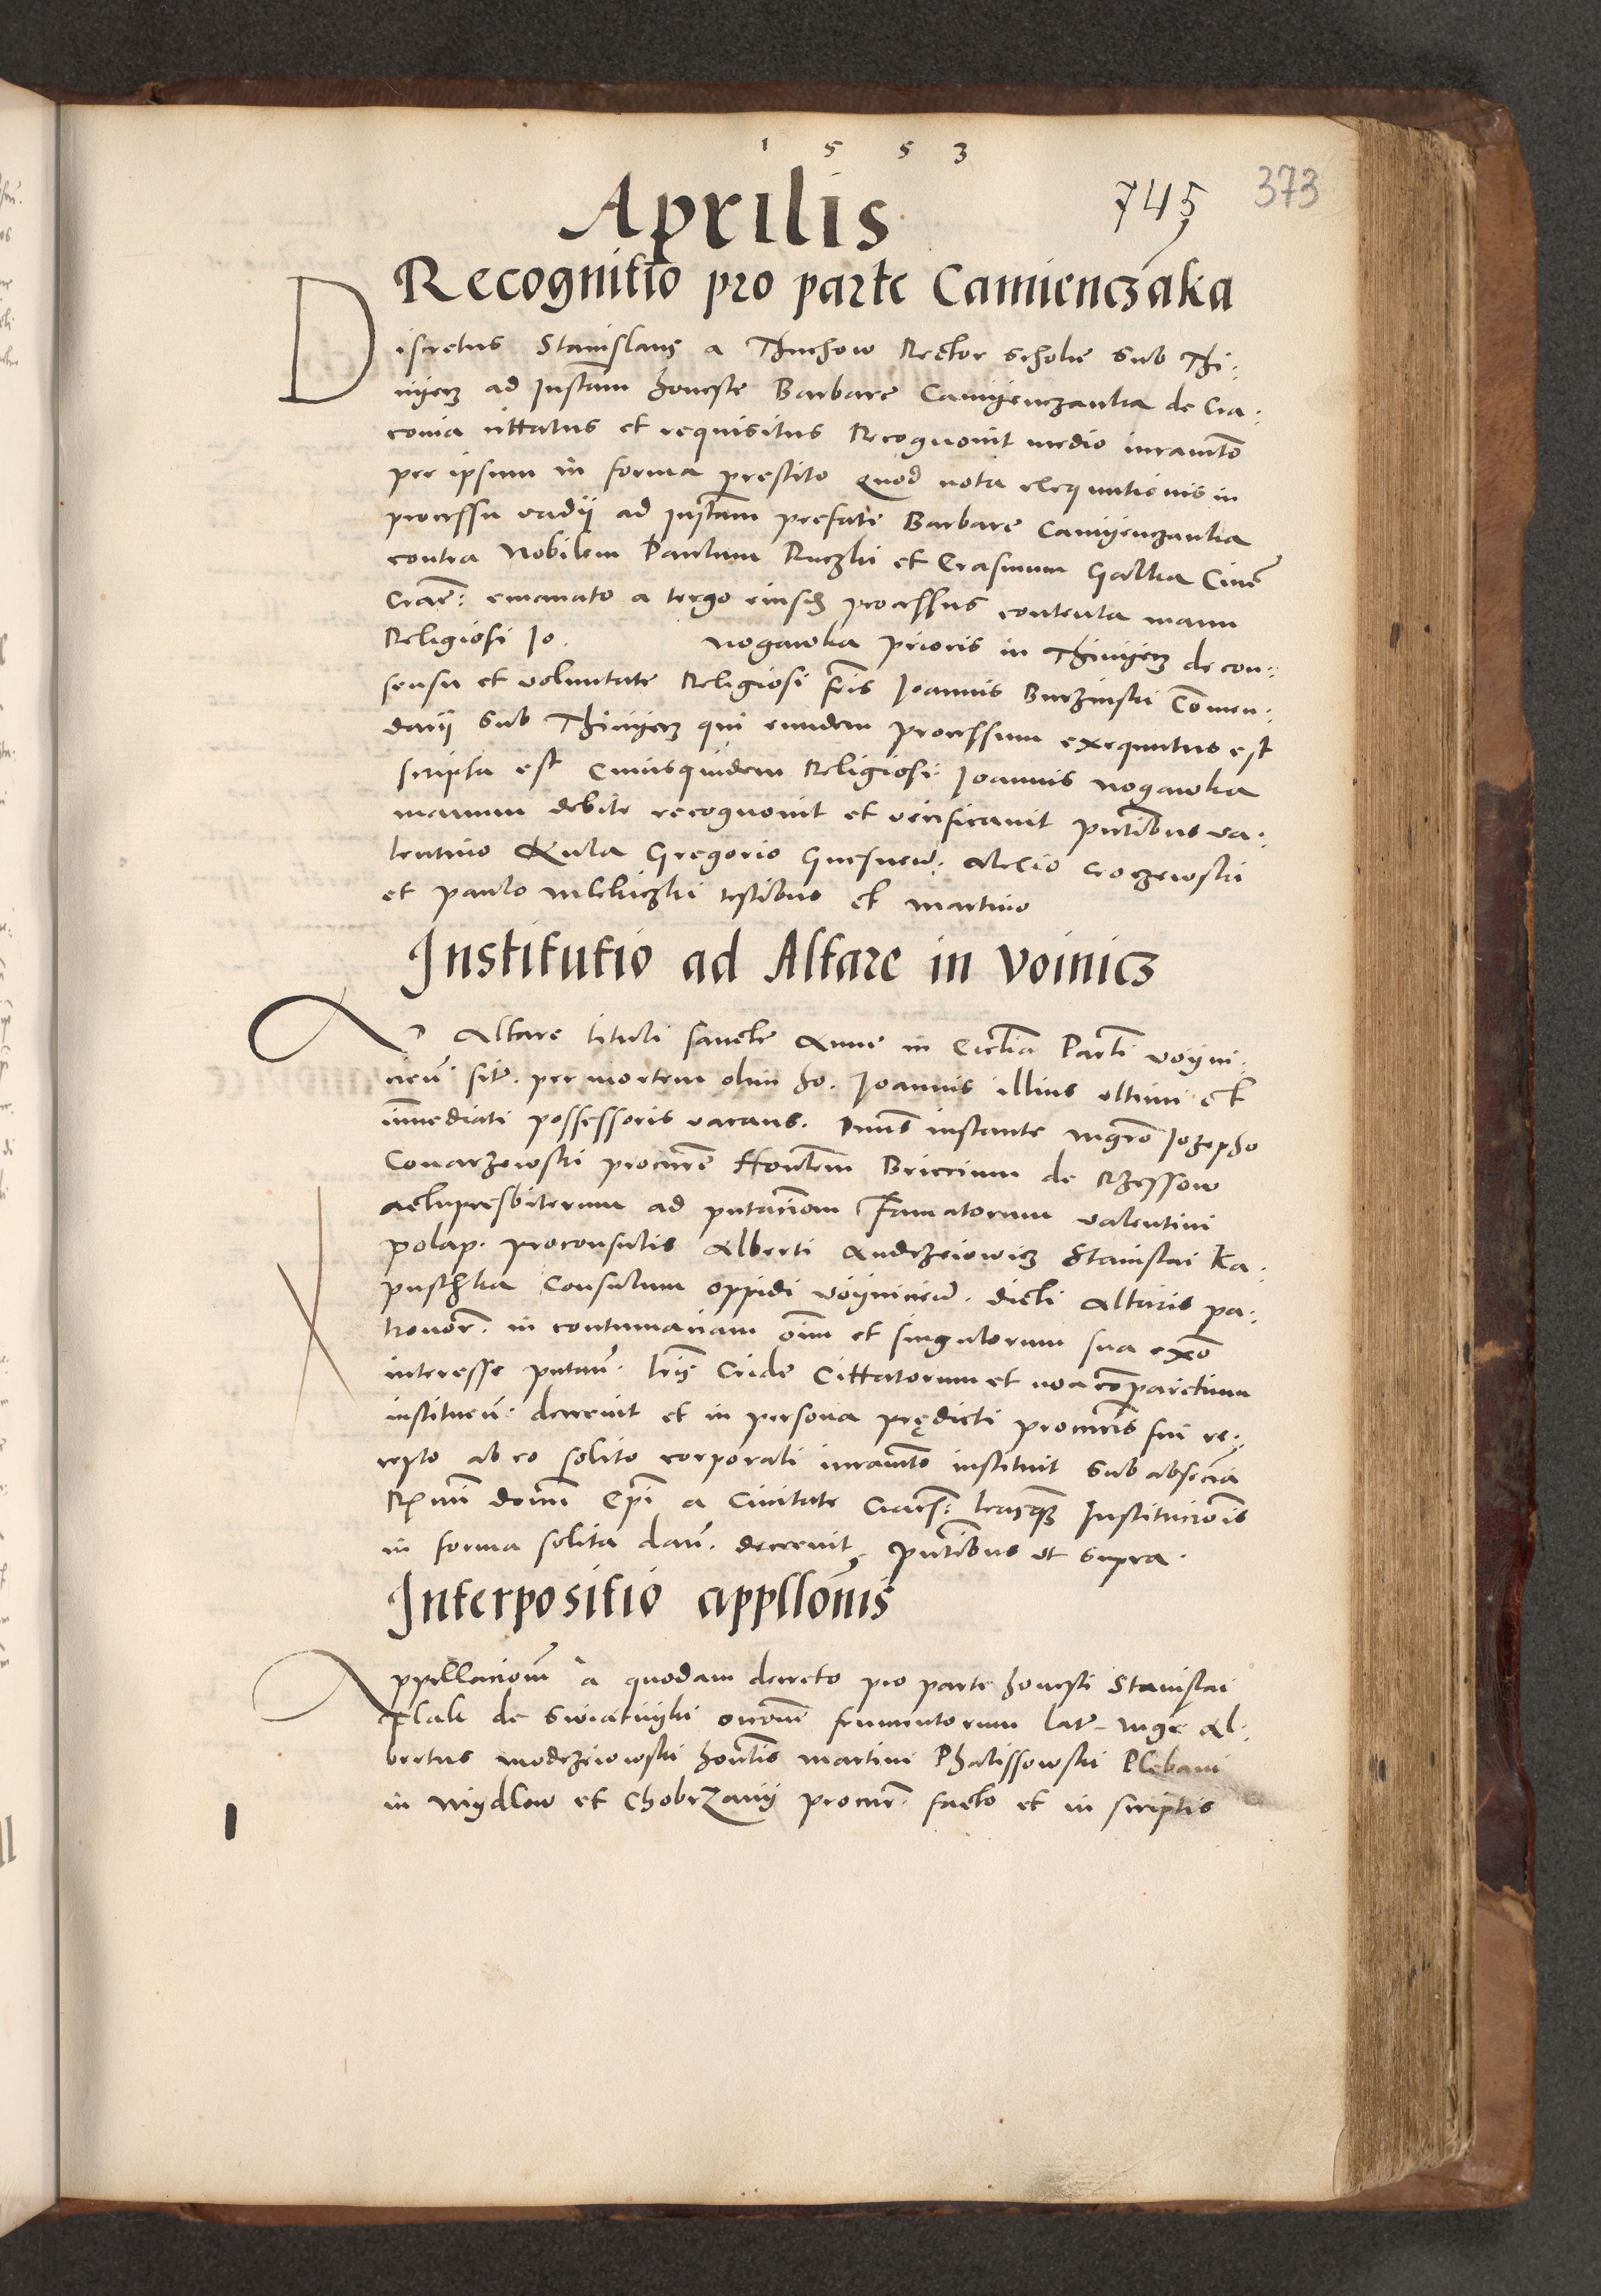 1 5 5 3
Aprilis
745
373
Recognitio pro parte Camienczaka
Discretus Stanislaus a Thuchow Rector scholae sub Thi:
nijecz ad Instam honeste Barbare Camijenczanka de Cra:
covia cittatus et requisitus Recognovit medio iuramto
per ipsum in forma prestito Quod nota exequutionis in
processu vadij ad Instam prefate Barbare Camijenczanka
contra Nobilem Paulum Ruczki et Erasmum Galka Civem
Crac: emanato a tergo eiusdem processus contenta manu
Religiosi Jo. Nogawka prioris in Thinijecz de con:
sensu et voluntate Religiosi fris Joannis Burzinski Commen:
darij sub Thinijecz qui eundem processum exequutus est
scripta est Cuiusquidem Religiosi Joannis Nogawka
manum debite recognovit et verificavit pntibus Va:
lentino Kula Gregorio Gnesnen. Alexio
et Paulo testibus et Martino
Institutio ad Altare in Voinicz
Ad Altare tituli sancte Anne in Ecclia Parli Voijni:
cien. sit. per mortem olim ho. Joannis illius ultimi et
immediati possessoris vacans. Dnus instante Mgro Jozepho
Covarzewski procure Hontem Briccium de Rzessow
Actupresbiterum ad pntacionem Famatorum Valentini
Polap. proconsulis Alberti Andrzeiowicz Stanislai Ka:
puschka Consulum oppidi Voijnicien. dicti Altaris pa:
tronor. in contumaciam oim et singulorum sua exo
interesse putan. lris Cride Cittatorum et non comparentium
instituen. decrevit et in persona prędicti procuris sui re:
cepto ab eo solito corporali iuramto instituit sub absencia
Rmi domi Epi a Civitate Cracs: lrasque Institucionis
in forma solita dan. decrevit, pntibus ut supra.
Interpositio appllonis
Appellacionem a quodam decreto pro parte honesti Stanislai
Flak de Swiatnyki frumentorum lat. Mgr Al:
bertus Modrzeiowski hontis Martini Phalissowski Plebani
in Mydlow et Chobrzanij procur. facto et in scriptis